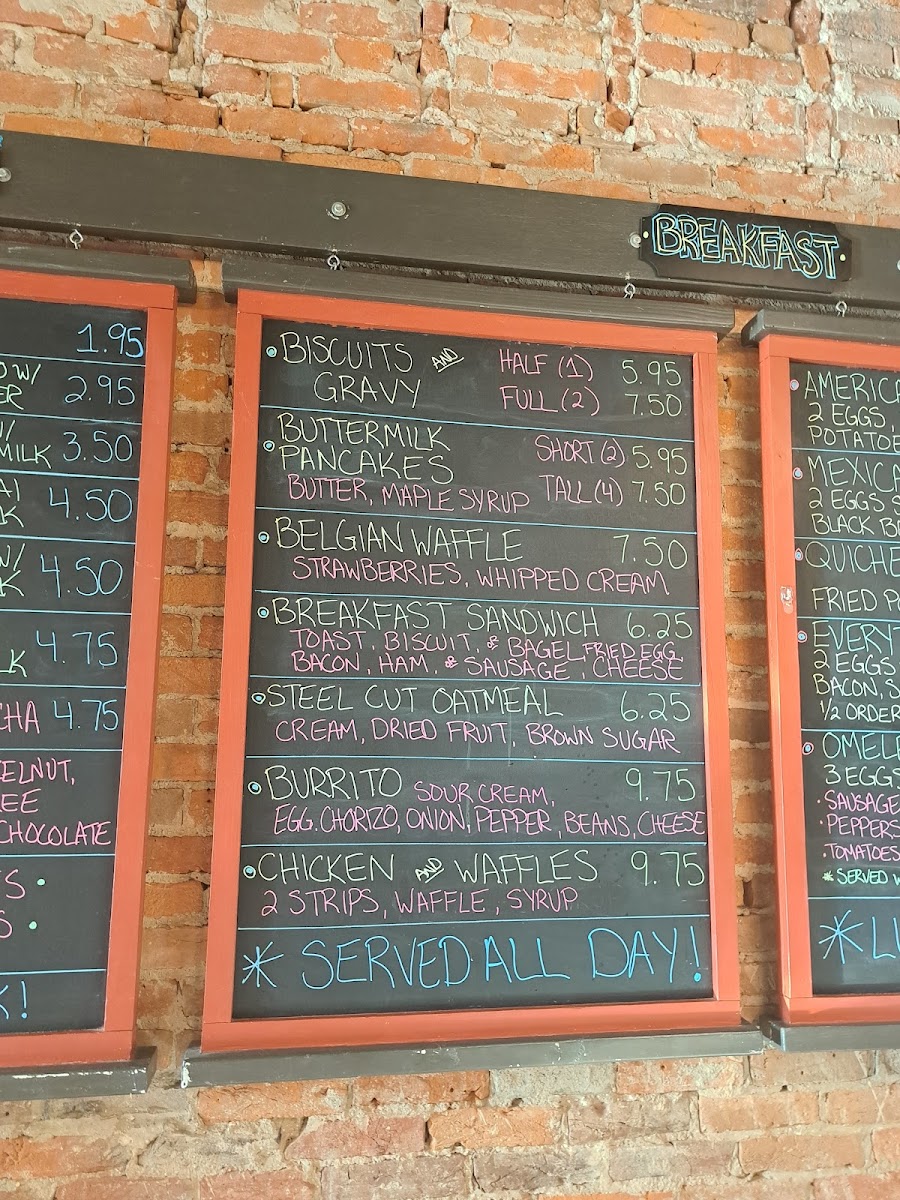 BREAKFAST
1.95
W/
2.95
W/
MILK 3.50
4.50
W/
4.50
4.75
4.75
CHOCOLATE
BISCUITS AND HALF (1) 5.95
GRAVY FULL (2) 7.50
BUTTERMILK
PANCAKES SHORT (2) 5.95
BUTTER, MAPLE SYRUP TALL (4) 7.50
BELGIAN WAFFLE 7.50
STRAWBERRIES, WHIPPED CREAM
BREAKFAST SANDWICH 6.25
TOAST, BISCUIT, & BAGEL, FRIED EGG
BACON, HAM, & SAUSAGE, CHEESE
STEEL CUT OATMEAL 6.25
CREAM, DRIED FRUIT, BROWN SUGAR
BURRITO SOUR CREAM, 9.75
EGG, CHORIZO, ONION, PEPPER, BEANS, CHEESE
CHICKEN AND WAFFLES 9.75
2 STRIPS, WAFFLE, SYRUP
* SERVED ALL DAY!
AMERICA
2 EGGS,
POTATOE
MEXICA
2 EGGS S
BLACK BE
QUICHE
FRIED PO
EVERYT
2 EGGS
BACON, S
1/2 ORDER
OMELE
3 EGGS
• SAUSAGE
• PEPPERS
• TOMATOES
* SERVED W
* LU